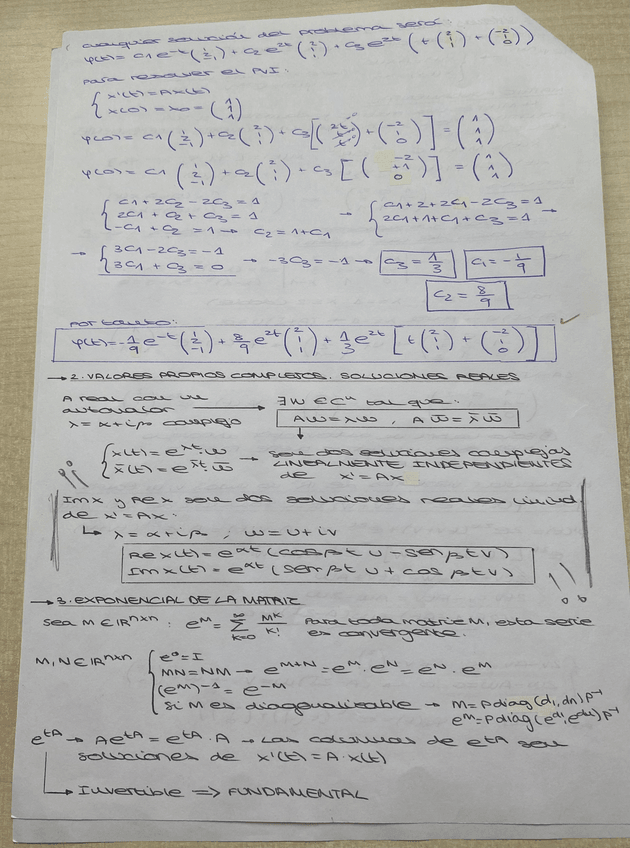 cualquier solución del problema será:
φ(t) = c1 e^-t (1 2 -1) + c2 e^2t (2 1 1) + c3 e^2t (t (2 1 1) + (-2 1 0))
para resolver el PVI:
{ x'(t) = Ax(t)
x(0) = x0 = (1 1 1)
φ(0) = c1 (1 2 -1) + c2 (2 1 1) + c3 [( ) + (-2 1 0)] = (1 1 1)
φ(0) = c1 (1 2 -1) + c2 (2 1 1) + c3 [(-2 +1 0)] = (1 1 1)
{ c1 + 2c2 - 2c3 = 1 → { c1 + 2 + 2c1 - 2c3 = 1
2c1 + c2 + c3 = 1 2c1 + 1 + c1 + c3 = 1 →
-c1 + c2 = 1 → c2 = 1 + c1
→ { 3c1 - 2c3 = -1 → -3c3 = -1 → c3 = 1/3 c1 = -1/9
3c1 + c3 = 0
c2 = 8/9
por tanto:
φ(t) = -1/9 e^-t (1 2 -1) + 8/9 e^2t (2 1 1) + 1/3 e^2t [t (2 1 1) + (-2 1 0)]
→ 2. VALORES PROPIOS COMPLEJOS. SOLUCIONES REALES
A real con un autovalor λ = α + iβ complejo → ∃ w ∈ Cⁿ tal que:
Aw = λw , A w̄ = λ̄ w̄
{ x(t) = e^λt · w → son dos soluciones complejas
x̄(t) = e^λ̄t · w̄ LINEALMENTE INDEPENDIENTES
de x' = Ax
¡¡
Im x y Re x son dos soluciones reales lin ind
de x' = Ax:
↳ λ = α + iβ , w = u + iv
Re x(t) = e^αt (cos βt u - sen βt v)
Im x(t) = e^αt (sen βt u + cos βt v)
!!
→ 3. EXPONENCIAL DE LA MATRIZ
Sea M ∈ IR^n×n : e^M = ∑ k=0 ∞ M^k / k! Para toda matriz M, esta serie
es convergente.
M, N ∈ IR^n×n { e^0 = I
MN = NM → e^M+N = e^M · e^N = e^N · e^M
(e^M)^-1 = e^-M
Si M es diagonalizable → M = P diag (d1, dn) P^-1
e^M = P diag (e^d1, e^dn) P^-1
e^tA → Ae^tA = e^tA · A → Las columnas de e^tA son
soluciones de x'(t) = A · x(t)
↳ Invertible => FUNDAMENTAL